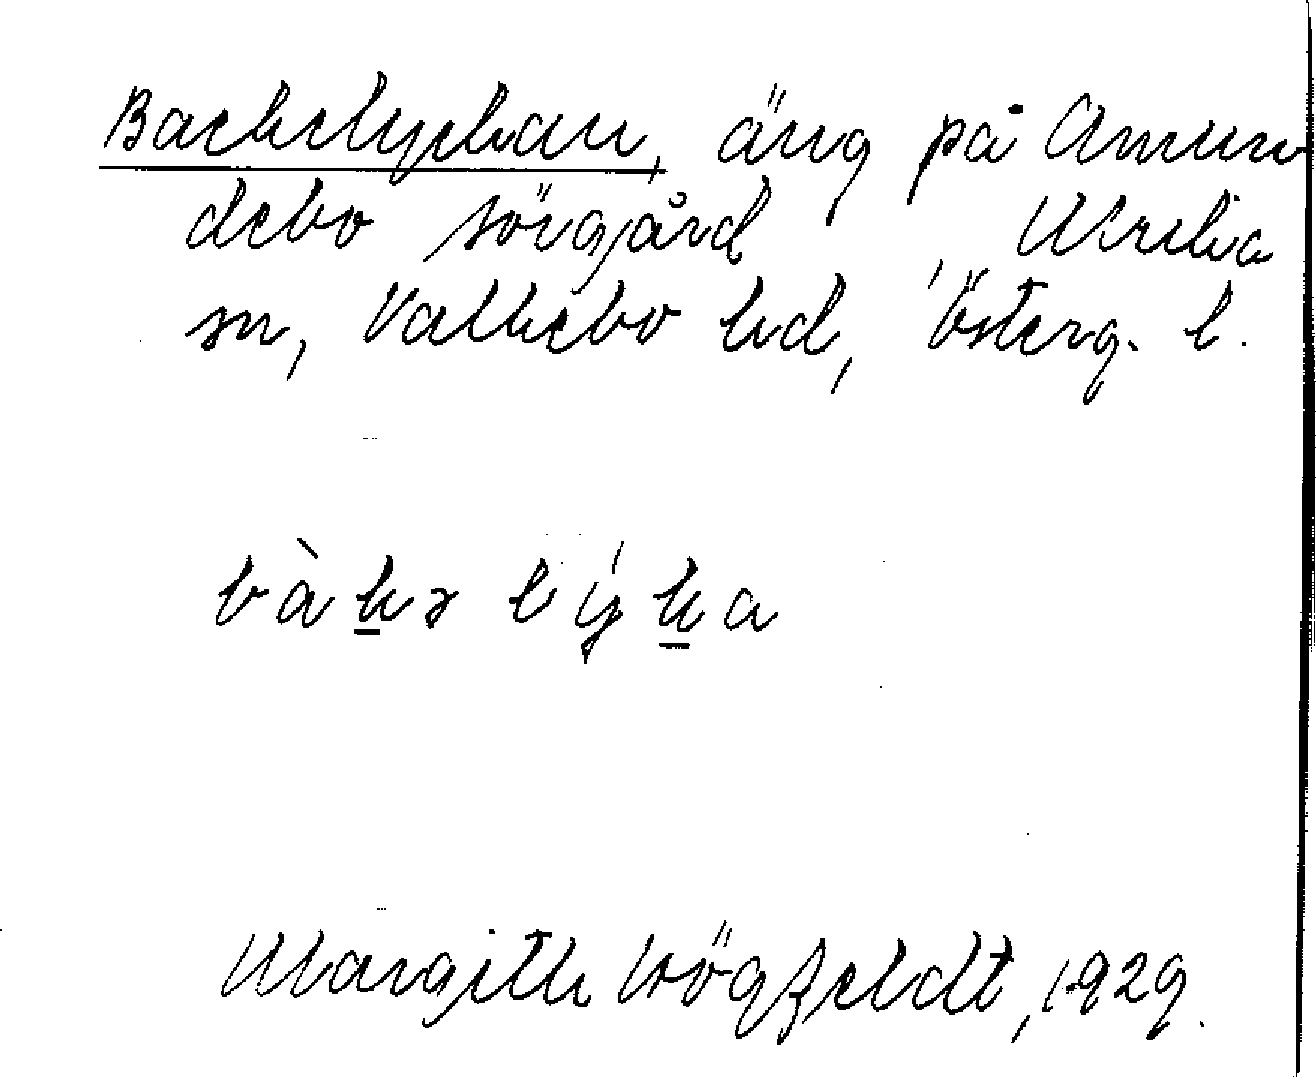 Backelyckan, äng på Amun
debo sörgård Ulrika
sn, Valkebo hd, Österg. l.
bàkə lýka
Margith Högfeldt, 1929.